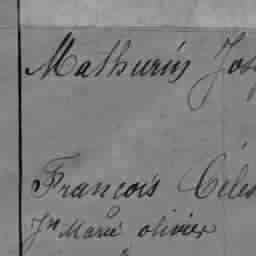 Mathurin Jos
François Céles
Jn Marie olivier